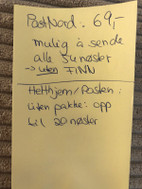 PostNord: 69,-
mulig å sende
alle 34 nøster
→ uten FINN
Helthjem/Posten:
liten pakke: opp
til 20 nøster